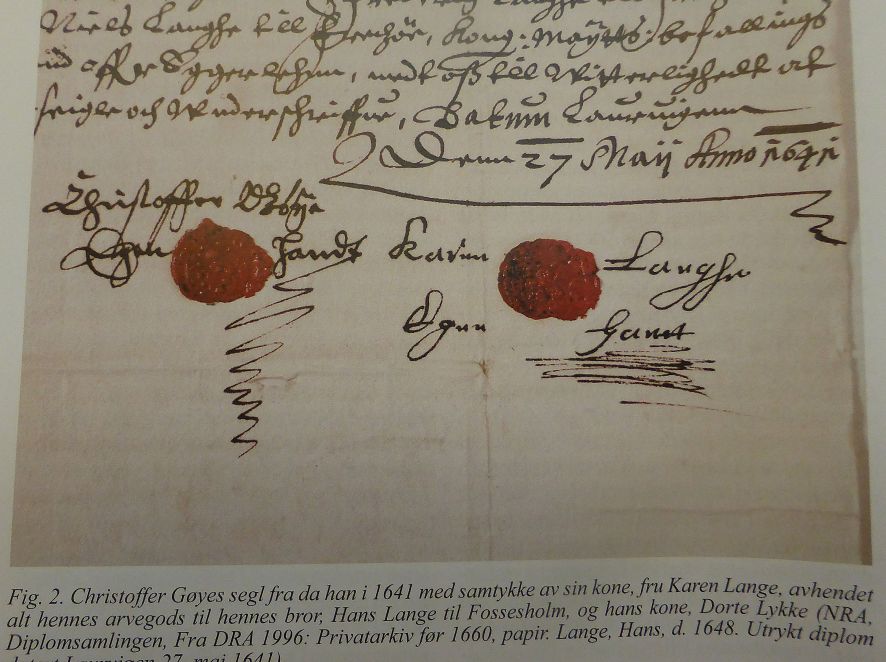 Niels Langhe till
Kong: Maÿtts: befallings
offr Eggerlehnn, medt oß till Witterlighedt at
seigle och Wnderschriffue, Datum Laurwigenn
Denn 27 Maij Anno 1641
Christoffer Gøÿe
Egen handt Karen Langhe
Egen Hannt
Fig. 2. Christoffer Gøyes segl fra da han i 1641 med samtykke av sin kone, fru Karen Lange, avhendet
alt hennes arvegods til hennes bror, Hans Lange til Fossesholm, og hans kone, Dorte Lykke (NRA,
Diplomsamlingen, Fra DRA 1996: Privatarkiv før 1660, papir. Lange, Hans, d. 1648. Utrykt diplom
27. mai 1641)